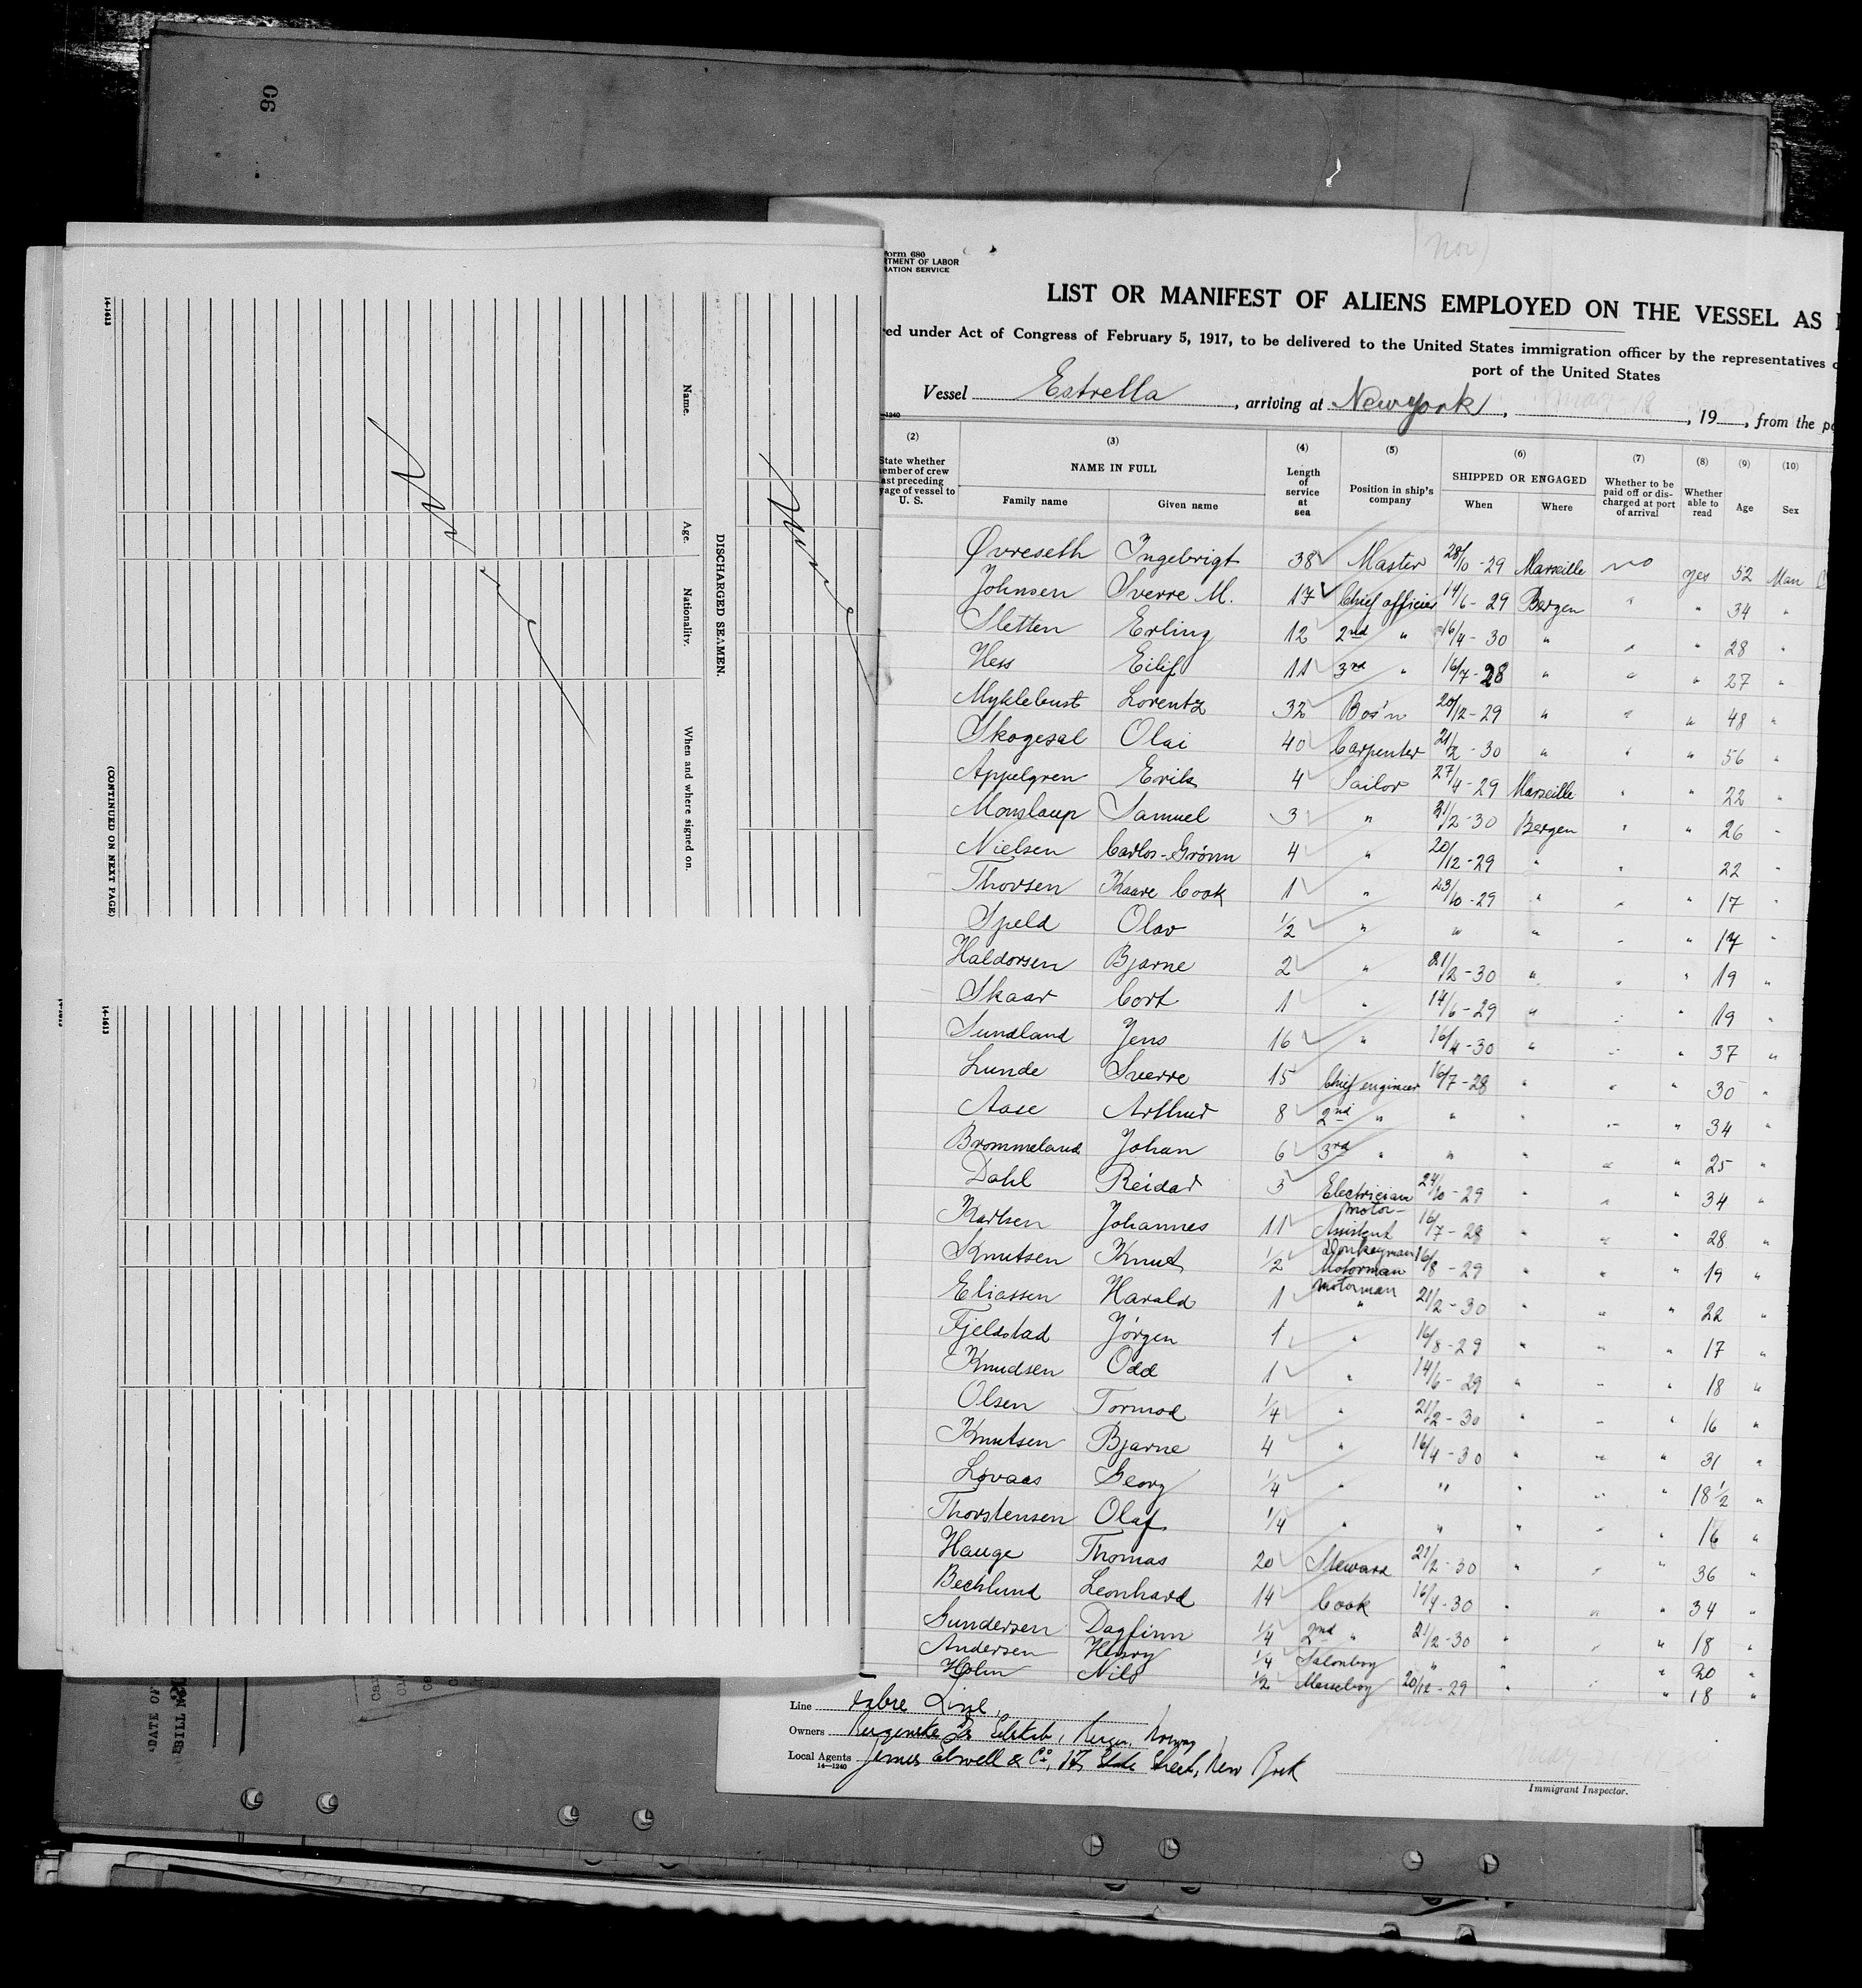 90
14-1613
Name.
Age.
Nationality.
When and where signed on.
DISCHARGED SEAMEN.
None
(CONTINUED ON NEXT PAGE)
14-1613
DATE OF
BILL
orm 680
RTMENT OF LABOR
RATION SERVICE
(Nor)
LIST OR MANIFEST OF ALIENS EMPLOYED ON THE VESSEL AS
red under Act of Congress of February 5, 1917, to be delivered to the United States immigration officer by the representatives
port of the United States
Vessel Estrella, arriving at New York, , 19 , from the po
-1240
(2) (3) (4) (5) (6) (7) (8) (9) (10)
State whether member of crew last preceding voyage of vessel to U. S. NAME IN FULL Length of service at sea Position in ship's company SHIPPED OR ENGAGED Whether to be paid off or discharged at port of arrival Whether able to read Age Sex
Family name Given name When Where
Øvreseth Ingebrigt 38 Master 28/10-29 Marseille no yes 52 Man
Johnsen Sverre M. 17 Chief officer 14/6-29 Bergen " " 34 "
Sletten Erling 12 2nd " 16/4-30 " " " 28 "
Hess Eilif 11 3rd " 16/7-28 " " " 27 "
Myklebust Lorentz 32 Bos'n 20/12-29 " " " 48 "
Skogesal Olai 40 Carpenter 21/2-30 " " " 56 "
Appelgren Erik 4 Sailor 27/4-29 Marseille " " 22 "
Monslaup Samuel 3 " 21/2-30 Bergen " " 26 "
Nielsen Carlos-Grönn 4 " 20/12-29 " " 22 "
Thorsen Kaare Cook 1 " 23/10-29 " " " 17 "
Speld Olav 1/2 " " " " " 17 "
Haldorsen Bjarne 2 " 21/2-30 " " " 19 "
Skaar Cort 1 " 14/6-29 " " " 19 "
Sundland Jens 16 " 16/4-30 " " " 37 "
Lunde Sverre 15 Chief engineer 16/7-28 " " " 30 "
Aase Arthur 8 2nd " " " " " 34 "
Brommeland Johan 6 3rd " " " " " 25 "
Dahl Reidar 3 Electrician 24/10-29 " " " 34 "
Karlsen Johannes 11 motor-Assistent 16/7-28 " " " 28 "
Knutsen Knut 1/2 Donkeyman Motorman 16/8-29 " " " 19 "
Eliassen Harald 1 motorman " 21/2-30 " " " 22 "
Fjeldstad Jörgen 1 " 16/8-29 " " " 17 "
Knudsen Odd 1 " 14/6-29 " " " 18 "
Olsen Tormod 1/4 " 21/2-30 " " " 16 "
Knutsen Bjarne 4 " 16/4-30 " " " 31 "
Lövaas Georg 1/4 " " " " " 18 1/2 "
Thorstensen Olaf 1/4 " " " " " 16 "
Hauge Thomas 20 Steward 21/2-30 " " " 36 "
Bechlund Leonhard 14 Cook 16/4-30 " " " 34 "
Gundersen Dagfinn 1/4 2nd " 21/2-30 " " " 18 "
Andersen Henry 1/4 Salonboy " " " 20 "
Holm Nils 1/2 Messeboy 20/12-29 " " " 18 "
Line Fabre Line
Owners Bergenske Selskab, Bergen, Norway
Local Agents James Elwell & Co, 17, State Street, New York
14-1240
Immigrant Inspector.